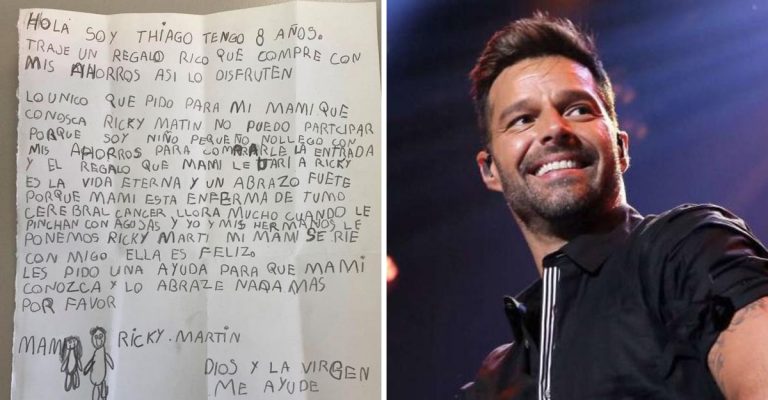 HOLA SOY THIAGO TENGO 8 AÑOS.
TRAJE UN REGALO RICO QUE COMPRE CON
MIS AHORROS ASI LO DISFRUTEN
LO UNICO QUE PIDO PARA MI MAMI QUE
CONOSCA RICKY MATIN NO PUEDO PARTCIPAR
PORQUE SOY NIÑO PEQUEÑO NOLLEGO CON
MIS AHORROS PARA COMPRARLE LA ENTRADA
Y EL REGALO QUE MAMI LE DARI A RICKY
ES LA VIDA ETERNA Y UN ABRAZO FUETE
PORQUE MAMI ESTA ENFERMA DE TUMO
CEREBRAL CANCER LLORA MUCHO CUANDO LE
PINCHAN CON AGUSAS Y YO Y MIS HERMANOS LE
PONEMOS RICKY MARTI MI MAMI SE RIE
CON MIGO ELLA ES FELIZ.
LES PIDO UNA AYUDA PARA QUE MAMI
CONOZCA Y LO ABRAZE NADA MAS
POR FAVOR
MAMI RICKY.MARTIN
DIOS Y LA VIRGEN
ME AYUDE